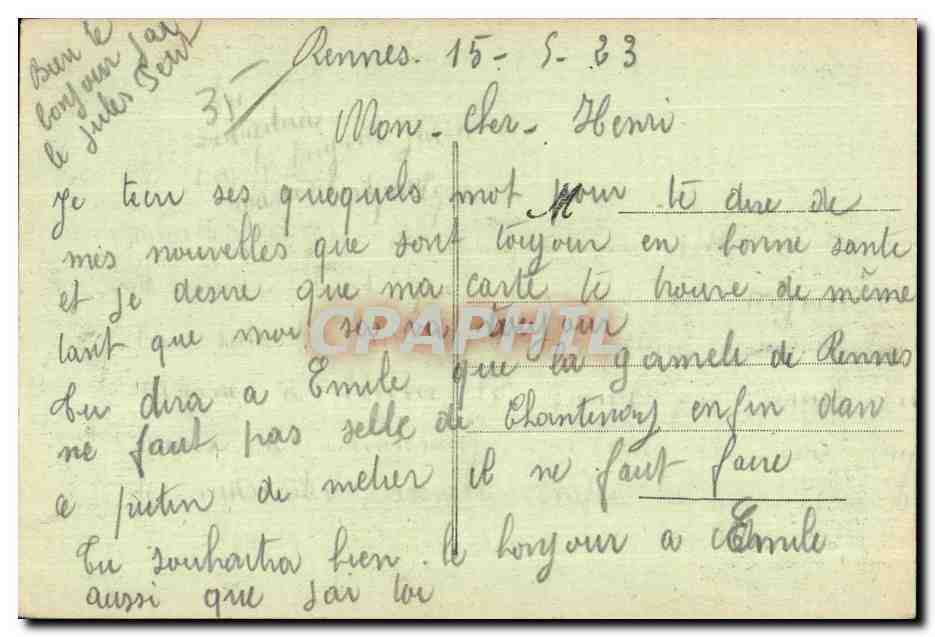 Bien le
bonjour
le Jules
Rennes. 15 - 5 - 23
Mon - Cher - Henri
Je ses quequels mot pour te dire de
mes nouvelles que sont toujour en bonne sante
et je desire que ma carte te trouve de même
tant que moi sa va toujour
CPAPHIL
tu dira a Emile que la gamele de Rennes
ne faut pas selle de Chantenay enfin dan
ce putin de metier il ne faut faire
tu souhaitra bien le bonjour a Emile
aussi que